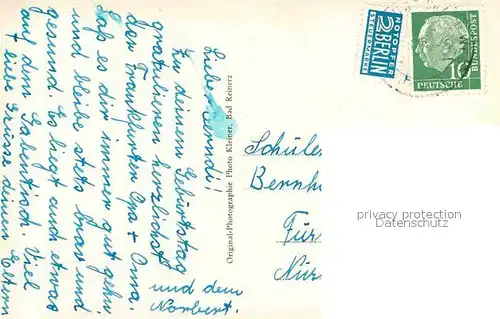 Lieber Berndi!
Zu deinem Geburtstag
gratulieren herzlichst
den Frankfurter Opa + Oma.
Laß es dir immer gut gehn
und bleibe stets brav und
gesund. Es liegt auch etwas
auf dem Gabentisch. Viel
liebe Grüsse deinen Eltern
und dem
Norbert.
Original-Photographie Photo Kleiner, Bad Reinerz
Schüle
Bernh
Für
Nür
NOTOPFER
2 BERLIN
STEUERMARKE
10
DEUTSCHE
BUNDESPOST
privacy protection
Datenschutz